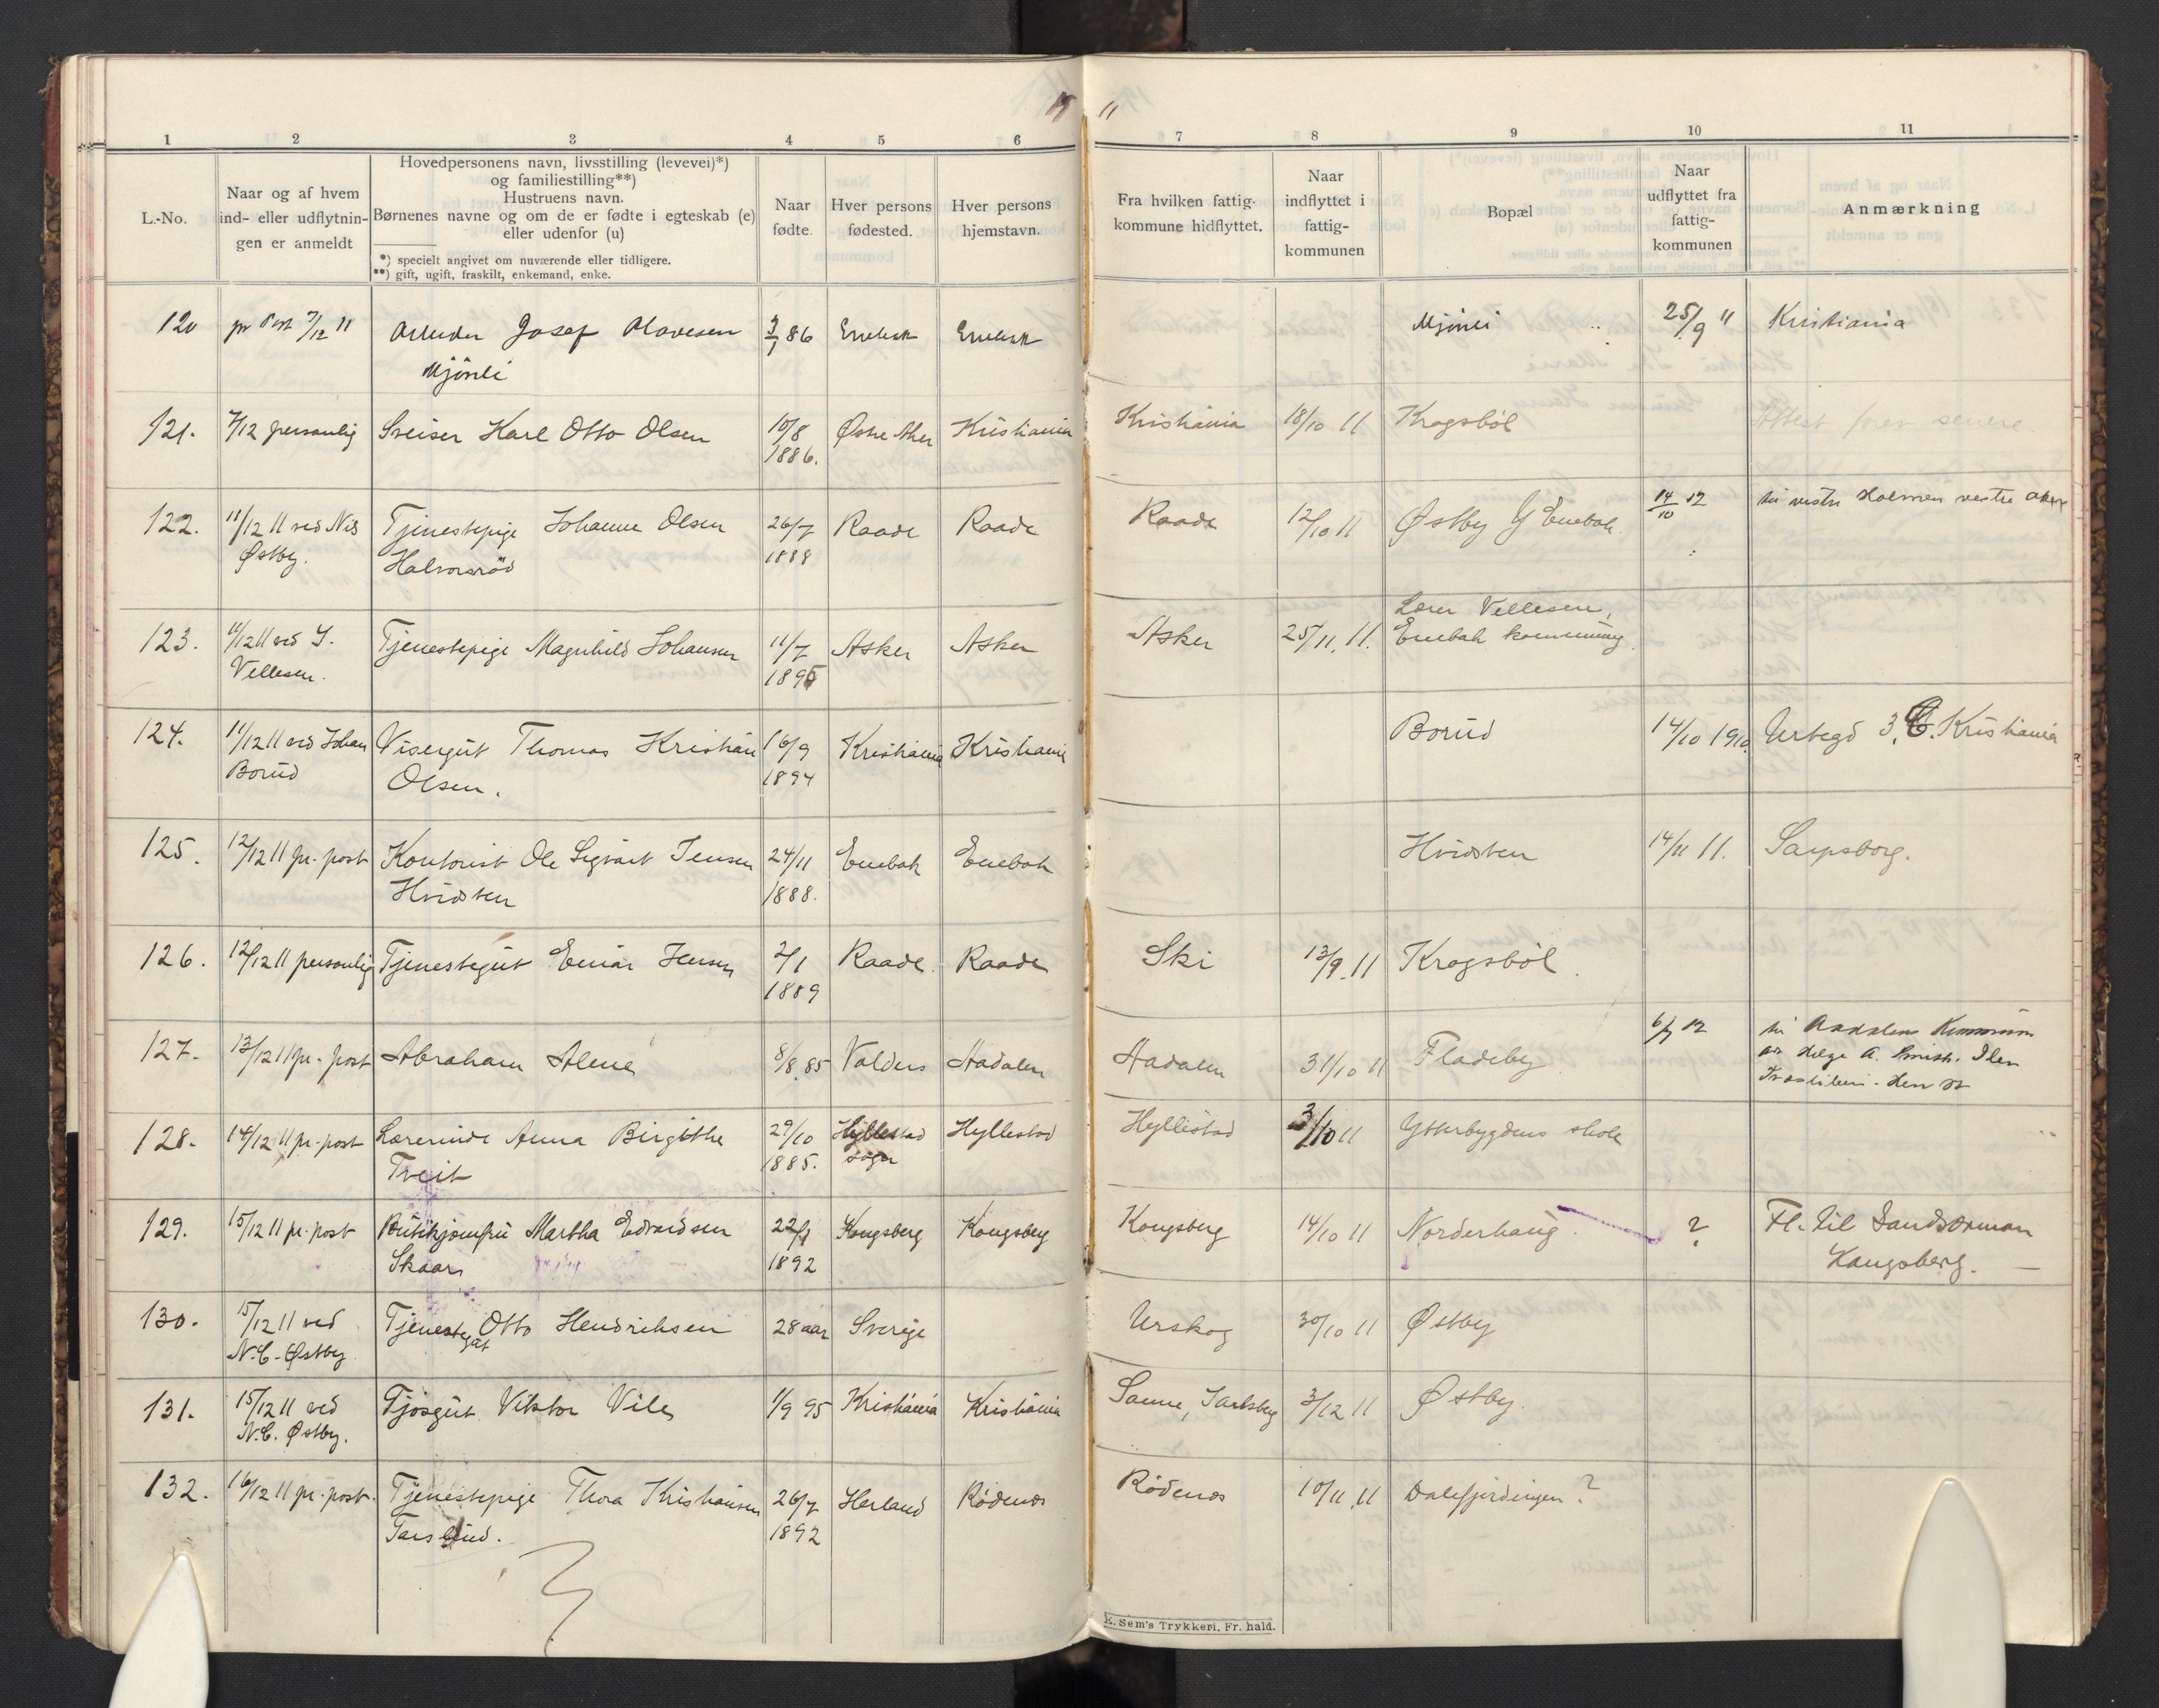 19 11
1 2 3 4 5 6 7 8 9 10 11
L.-No.
Naar og af hvem
ind- eller udflytnin-
gen er anmeldt
Hovedpersonens navn, livsstilling (levevei)*)
og familiestilling**)
Hustruens navn.
Børnenes navne og om de er fødte i egteskab (e)
eller udenfor (u)
*) specielt angivet om nuværende eller tidligere.
**) gift, ugift, fraskilt, enkemand, enke.
Naar
fødte.
Hver persons
fødested.
Hver persons
hjemstavn.
Fra hvilken fattig-
kommune hidflyttet.
Naar
indflyttet i
fattig-
kommunen
Bopæl
Naar
udflyttet fra
fattig-
kommunen
Anmærkning
120 pr Post 7/12 11 Arbeider Josef Olavesen 3/1 86 Enebak Enebak Mjönli 25/9 11 Kristiania
Mjönli
121. 7/12 personlig Sveiser Karl Otto Olsen 10/8 Østre Aker Kristiania Kristiania 18/10 11 Kragsböl Attest prev senere.
1886.
122. 11/12 11 ved Nils Tjenestepige Johanne Olsen 26/7 Raade Raade Raade 12/10 11 Østby Y Enebak 14/10 12 til vestre Holmen vestre Aker
Østby. Halvorsröd 1888
123. 11/12 11 ved J. Tjenestepige Magnhild Johansen 11/7 Asker Asker Asker 25/11. 11. Lærer Vellesen,
Vellesen. 1895 Enebak
124. 11/12 11 ved Johan Visergut Thomas Kristian 16/9 Kristiania Kristiania Borud 14/10 1910. Urtegd 3, Kristiania
Borud Olsen. 1894
125. 12/12 11 pr. post Kontorist Ole Sigvart Jensen 24/11 Enebak Enebak Hvidsten 14/11 11. Sarpsborg.
Hvidsten 1888.
126. 12/12 11 personlig Tjenestegut Einar Jensen 2/1 Raade. Raade Ski 13/9. 11 Kragsböl.
1889
127. 13/12 11 pr. post Abraham Alme 8/8. 85 Valders Aadalen Aadalen 31/10 11 Fladeby 6/7 12 til Aadalens
128. 14/12 11 pr. post Lærerinde Anna Birgithe 29/10 Hyllestad Hyllestad Hyllestad 3/10 11 Ytterbygdens skole
Tveit 1885. sogn
129. 15/12 11 pr. post Butikjomfru Martha Edvardsen 22/1 Kongsberg Kongsberg Kongsberg 14/10 11 Norderhaug ? Fl. til Sandsværman
Skaar 1892 Kongsberg.
130. 15/12 11 ved Tjenestegut Otto Hendriksen 28 aar Sverige Urskog 30/10 11 Østby
N. C. Østby
131. 15/12 11 ved Fjösgut Viktor Vile 1/9 95 Kristiania Kristiania Sanne, Jarlsberg 3/12 11 Østby.
N. C. Østby.
132. 16/12 11 pr. post. Tjenestepige Thora Kristiansen 26/7 Herland Rödenes Rödenes 10/11. 11 Dalefjerdingen?
Tarslud. 1892
E. Sem's Trykkeri, Fr.hald.